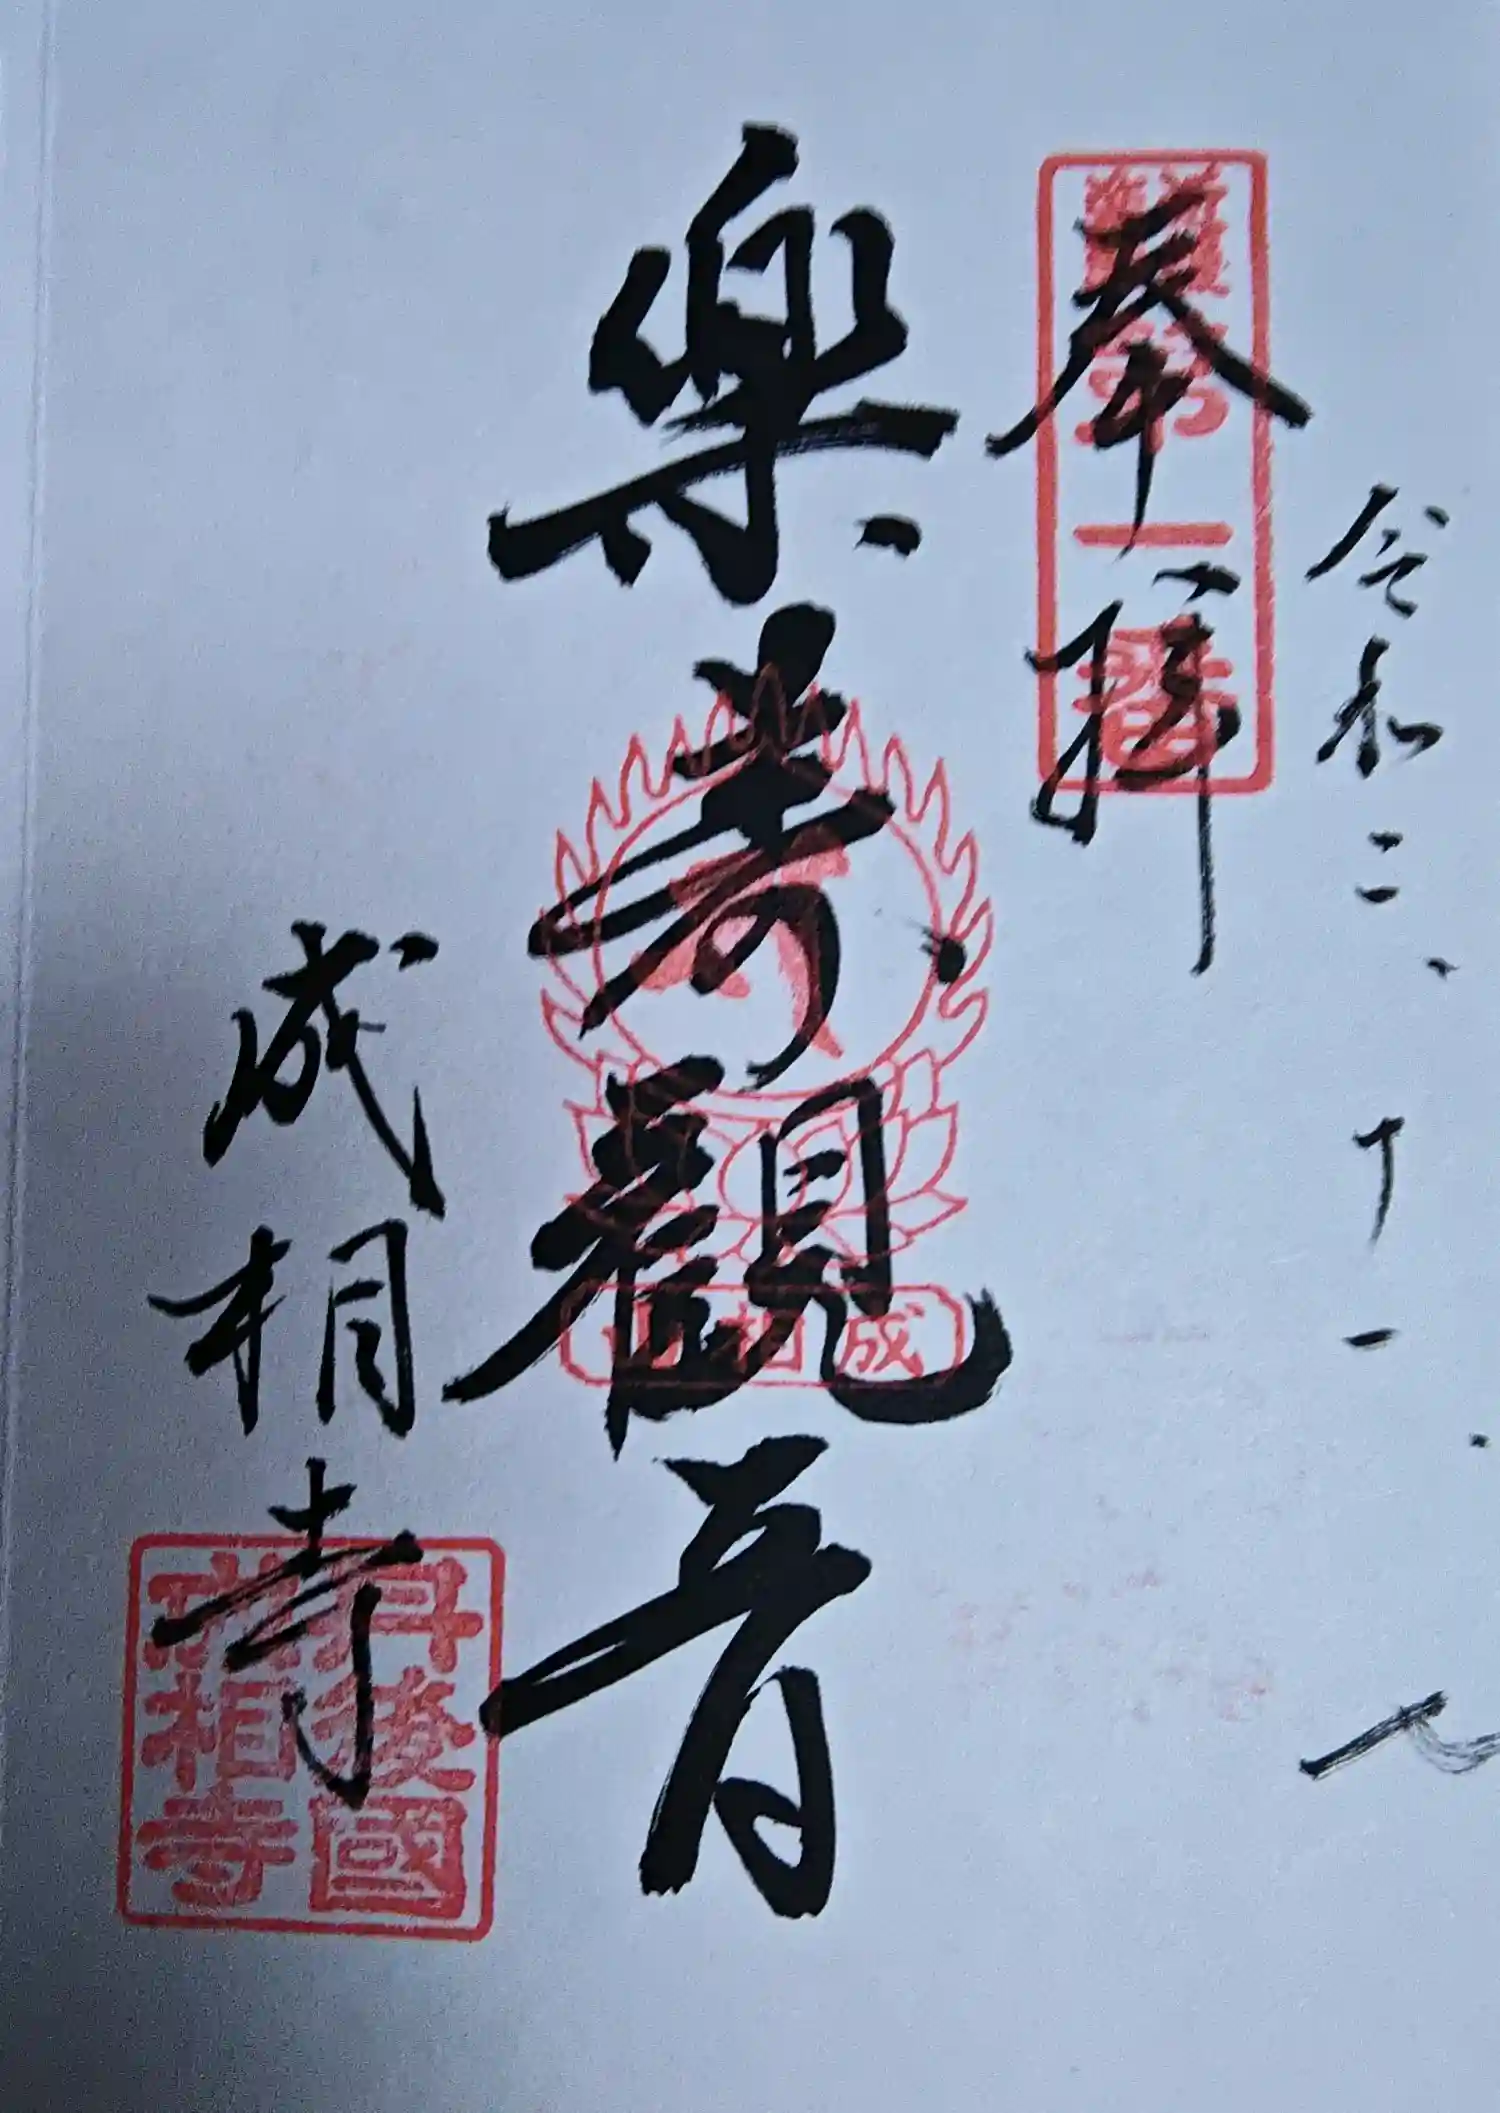 令和二、十一
奉拝
第一番
樂寿觀音
成相山
成相寺
丹後國
成相寺